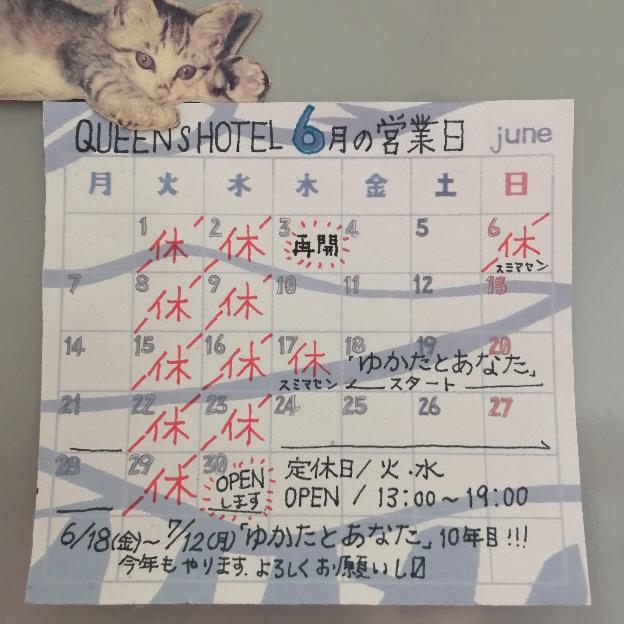 QUEENSHOTEL 6月の営業日 june
月 火 水 木 金 土 日
1 休 2 休 3 再開 4 5 6 休 スミマセン
7 8 休 9 休 10 11 12 13
14 15 休 16 休 17 休 スミマセン 18 19 20 「ゆかたとあなた」 スタート
21 22 休 23 休 24 25 26 27
28 29 休 30 OPENします 定休日/火.水
OPEN / 13:00〜19:00
6/18(金)〜7/12(月)「ゆかたとあなた」10年目!!!
今年もやります.よろしくお願いし〼